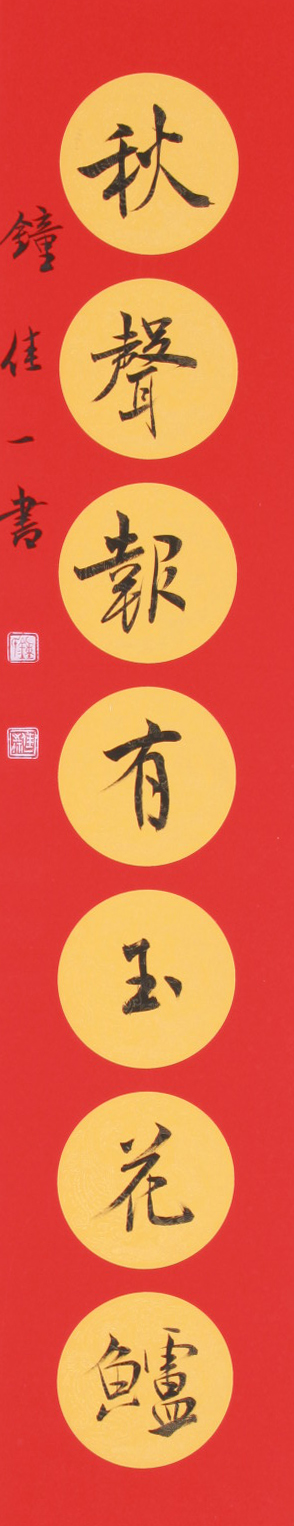 秋聲報有玉花鱸
鐘佳一書